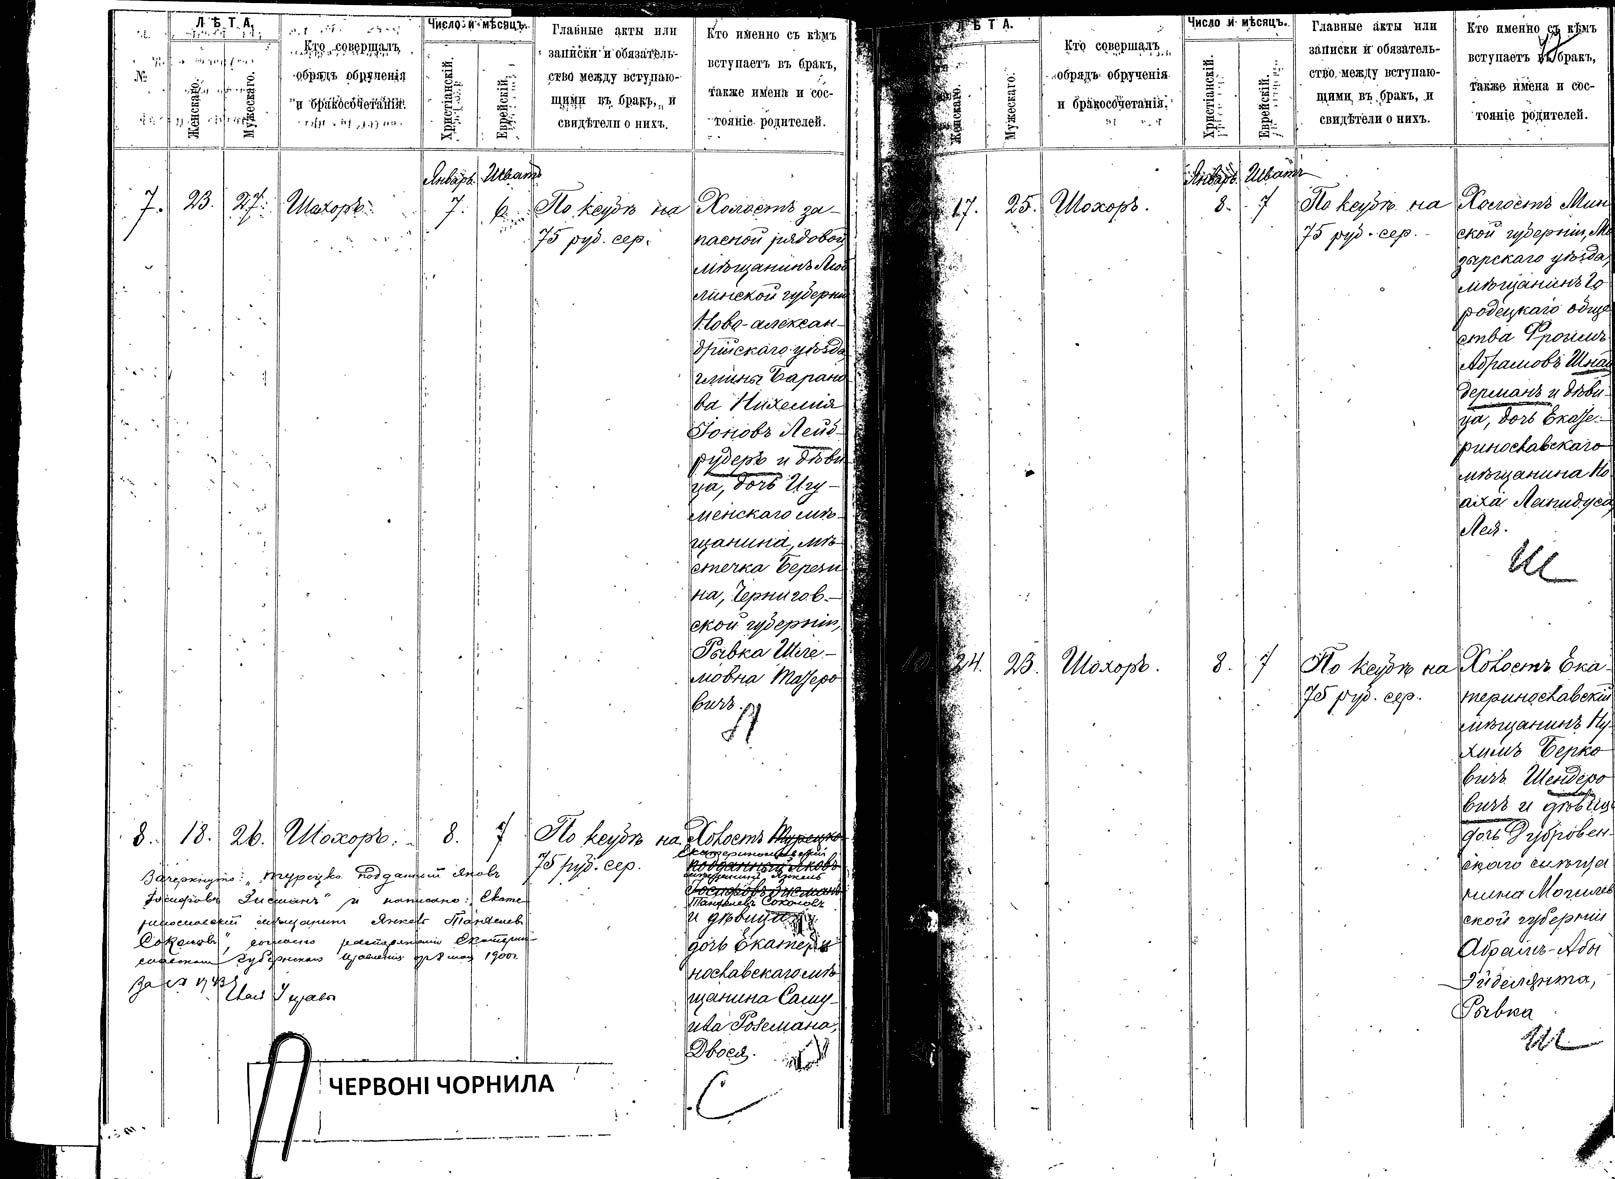 ЛѢТА.
№
Женскаго.
Мужескаго.
Кто совершалъ
обрядъ обрученія
и бракосочетанія.
Число и мѣсяцъ.
Христіанскій.
Еврейскій.
Главные акты или
записки и обязатель-
ство между вступаю-
щими въ бракъ, и
свидѣтели о нихъ.
Кто именно съ кѣмъ
вступаетъ въ бракъ,
также имена и сос-
тояніе родителей.
Январь Шватъ
7. 23. 27. Шохоръ. 7. 6
По ксубѣ на
75 руб. сер.
Холостъ за-
пасной рядовой
мѣщанинъ Люб
линской губерни
Ново-алексан-
дрійскаго уѣзда
гмины Барано
ва Нихемія
Іоновъ Лейб-
рудеръ и дѣви
ца, дочь Игу-
менскаго мѣ-
щанина, мѣ-
стечка Берези
на, Чернигов-
ской губерніи,
Рывка Шле-
мовна
вичъ.
Л
8. 18. 26. Шохоръ. 8. 7
По ксубѣ на
75 руб. сер.
Холостъ Турецко
Екатеринославскій
подданный Яковъ
мѣщанинъ Янкель
Іосифовъ Гисманъ
Соколовъ
и дѣвица
дочь Екатери
нославскаго мѣ
щанина Саму-
ила Роземана,
Двося.
С
Зачеркнуто: „Турецко подданный Яковъ
Іосифовъ Гисманъ" и написано: Екате-
ринославскій мѣщанинъ Янкель
Соколовъ", согласно Екатерино-
славскаго Губернскаго Правленія 1900г.
За №
ЧЕРВОНІ ЧОРНИЛА
ЛѢТА.
Женскаго.
Мужескаго.
Кто совершалъ
обрядъ обрученія
и бракосочетанія.
Число и мѣсяцъ.
Христіанскій.
Еврейскій.
Главные акты или
записки и обязатель-
ство между вступаю-
щими въ бракъ, и
свидѣтели о нихъ.
Кто именно съ кѣмъ
вступаетъ въ бракъ,
также имена и сос-
тояніе родителей.
Январь Шватъ
17. 25. Шохоръ. 8. 7
По ксубѣ на
75 руб. сер.
Холостъ Мин
ской губерніи, Мо
зырскаго уѣзда,
мѣщанинъ Го
родецкаго обще
ства Фроимъ
Абрамовъ Шнай
дерманъ и дѣви-
ца, дочь Екате-
ринославскаго
мѣщанина Но
аха Лапидуса,
Лея.
Ш
10. 24. 23. Шохоръ. 8. 7
По ксубѣ на
75 руб. сер.
Холостъ Ека-
теринославскій
мѣщанинъ Ну
химъ Берко
вичъ Шендеро
вичъ и дѣвица
дочь Дубровен-
скаго мѣща
нина Могилев
ской губерніи
Абрамъ-Абы
Эйделянта,
Рывка
Ш